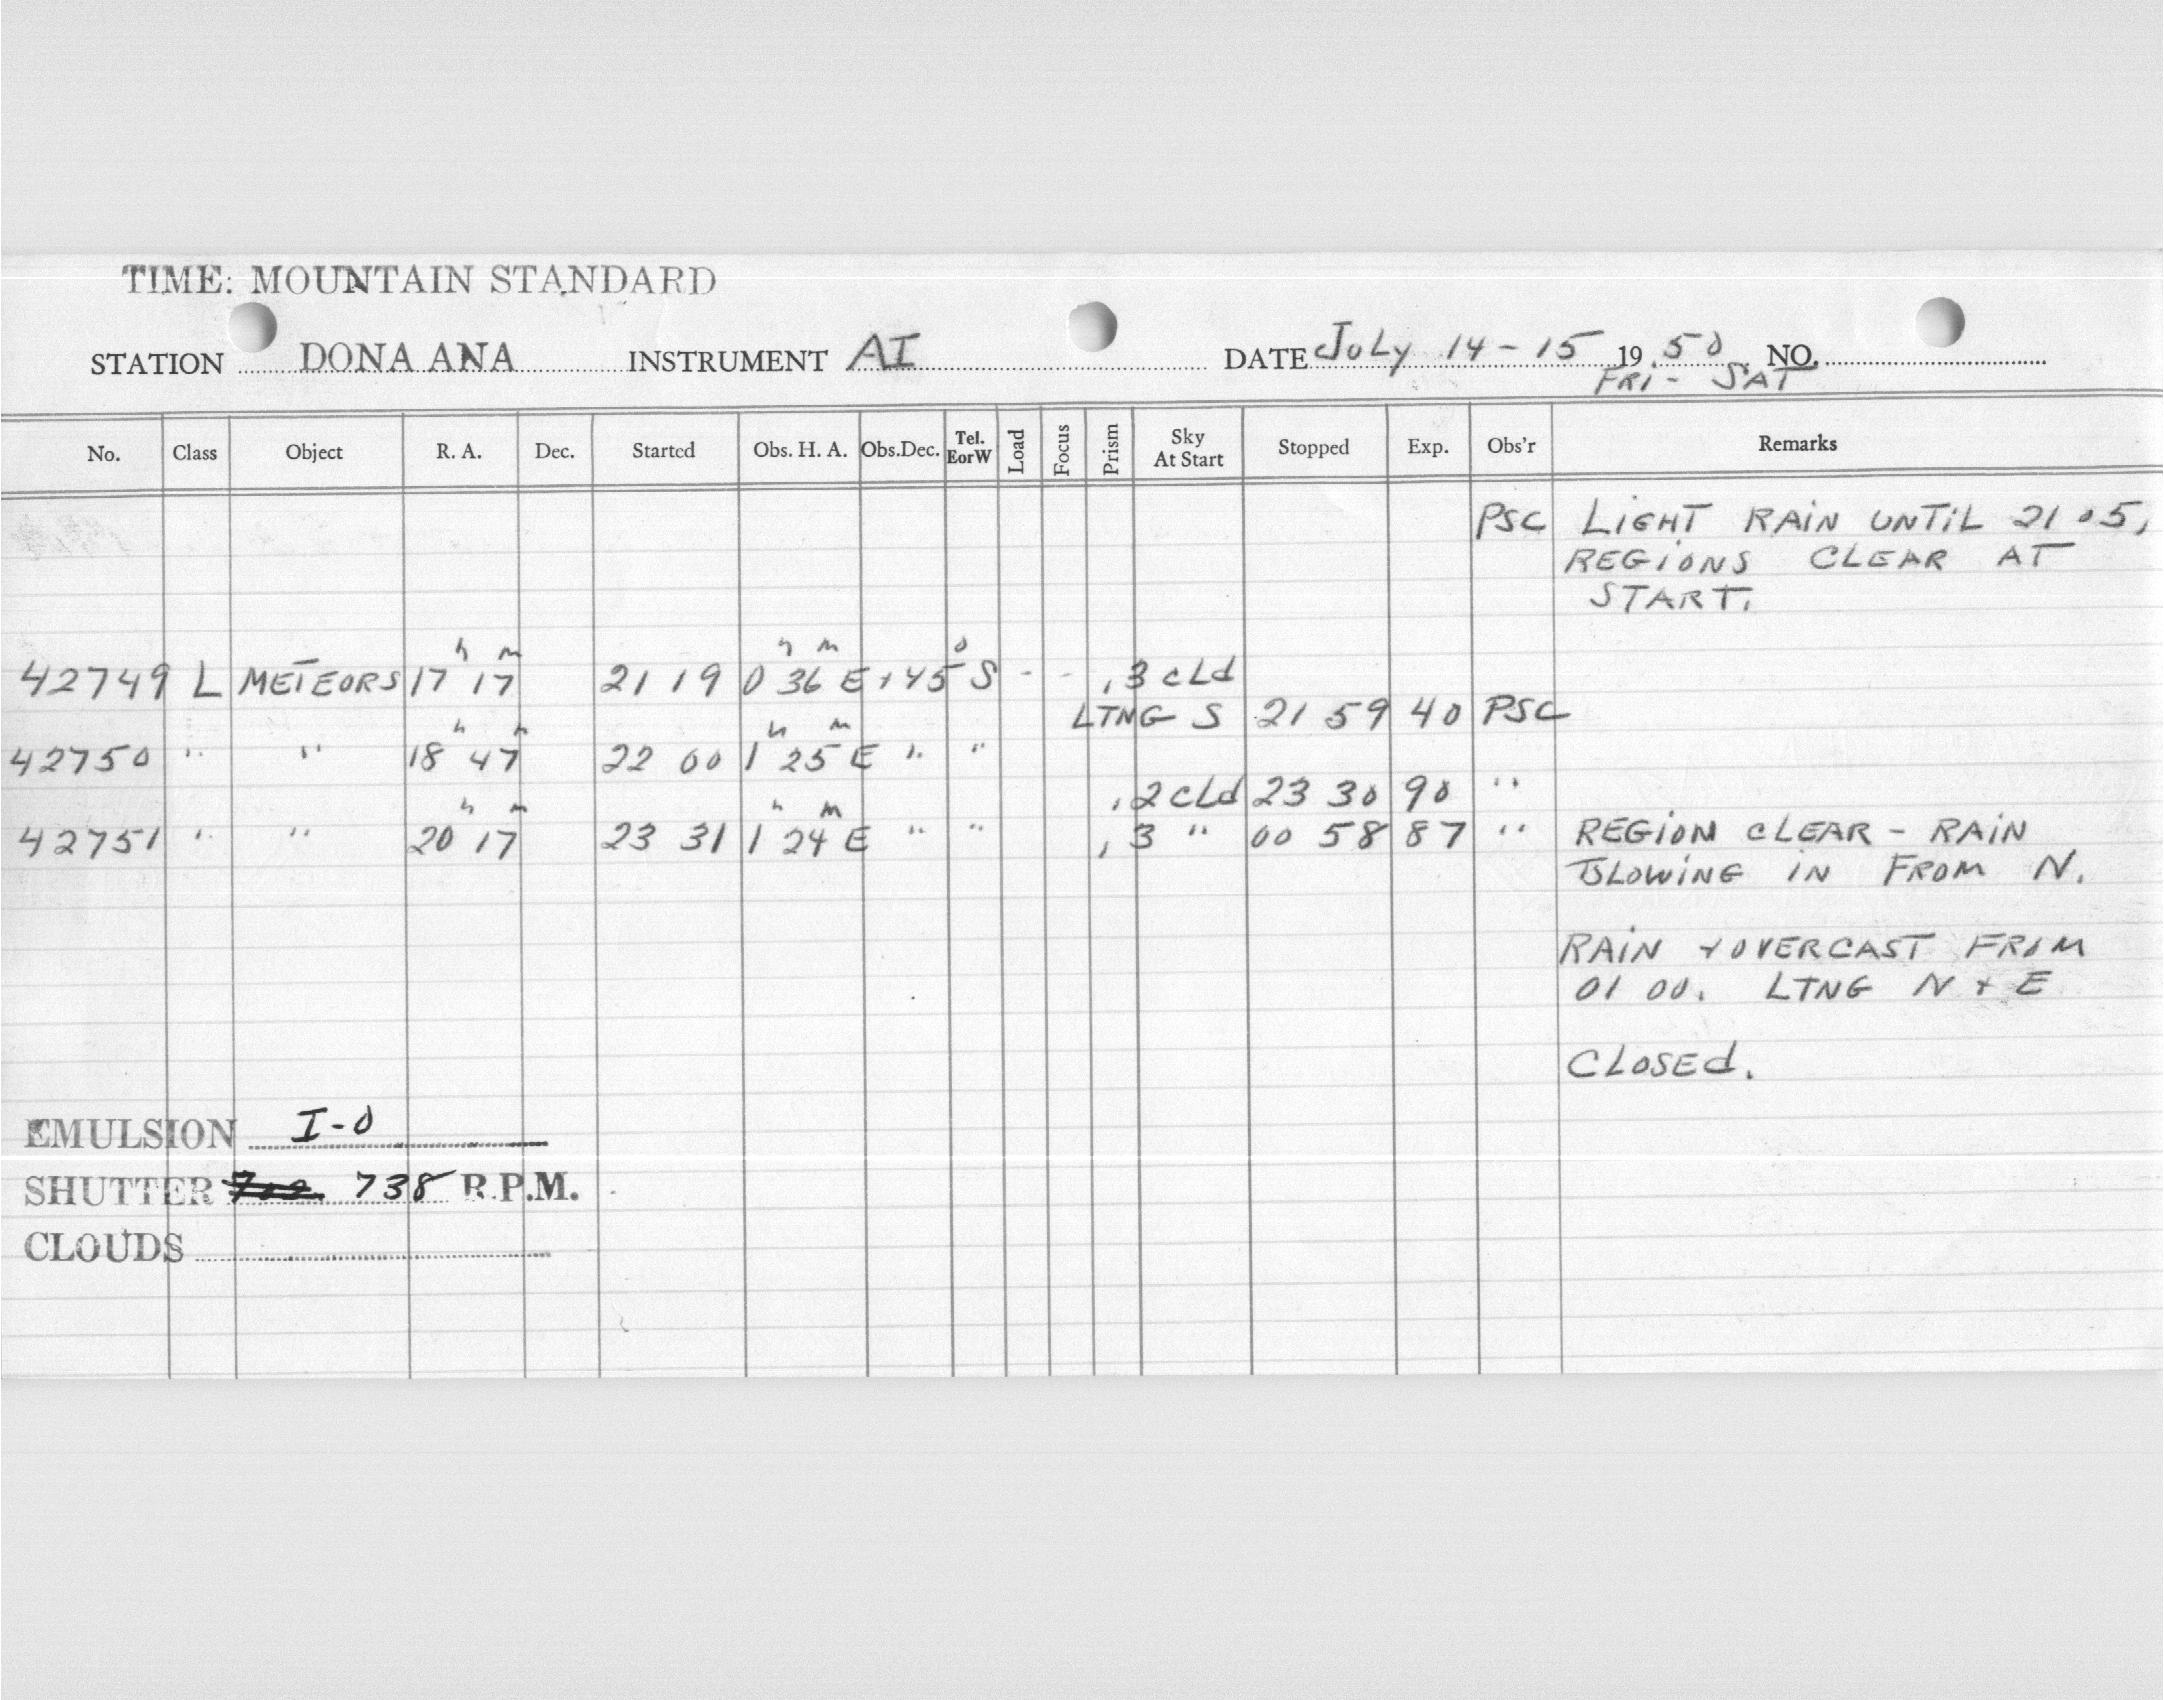 TIME: MOUNTAIN STANDARD
STATION DONA ANA INSTRUMENT AI DATE July 14-15 1950 NO.
FRI - SAT
No. Class Object R. A. Dec. Started Obs. H. A. Obs.Dec. Tel. EorW Load Focus Prism Sky At Start Stopped Exp. Obs'r Remarks
PSC LIGHT RAIN UNTIL 21 05,
REGIONS CLEAR AT
START.
42749 L METEORS 17h 17m 21 19 0h 36m E +45° S - - .3 cLd
LTNG S 21 59 40 PSC
42750 " " 18h 47m 22 00 1h 25m E " "
.2 cLd 23 30 90 "
42751 " " 20h 17m 23 31 1h 24m E " " .3 " 00 58 87 " REGION CLEAR - RAIN
BLOWING IN FROM N.
RAIN + OVERCAST FROM
01 00. LTNG N + E
CLOSEd.
EMULSION I-0
SHUTTER 738 R.P.M.
CLOUDS